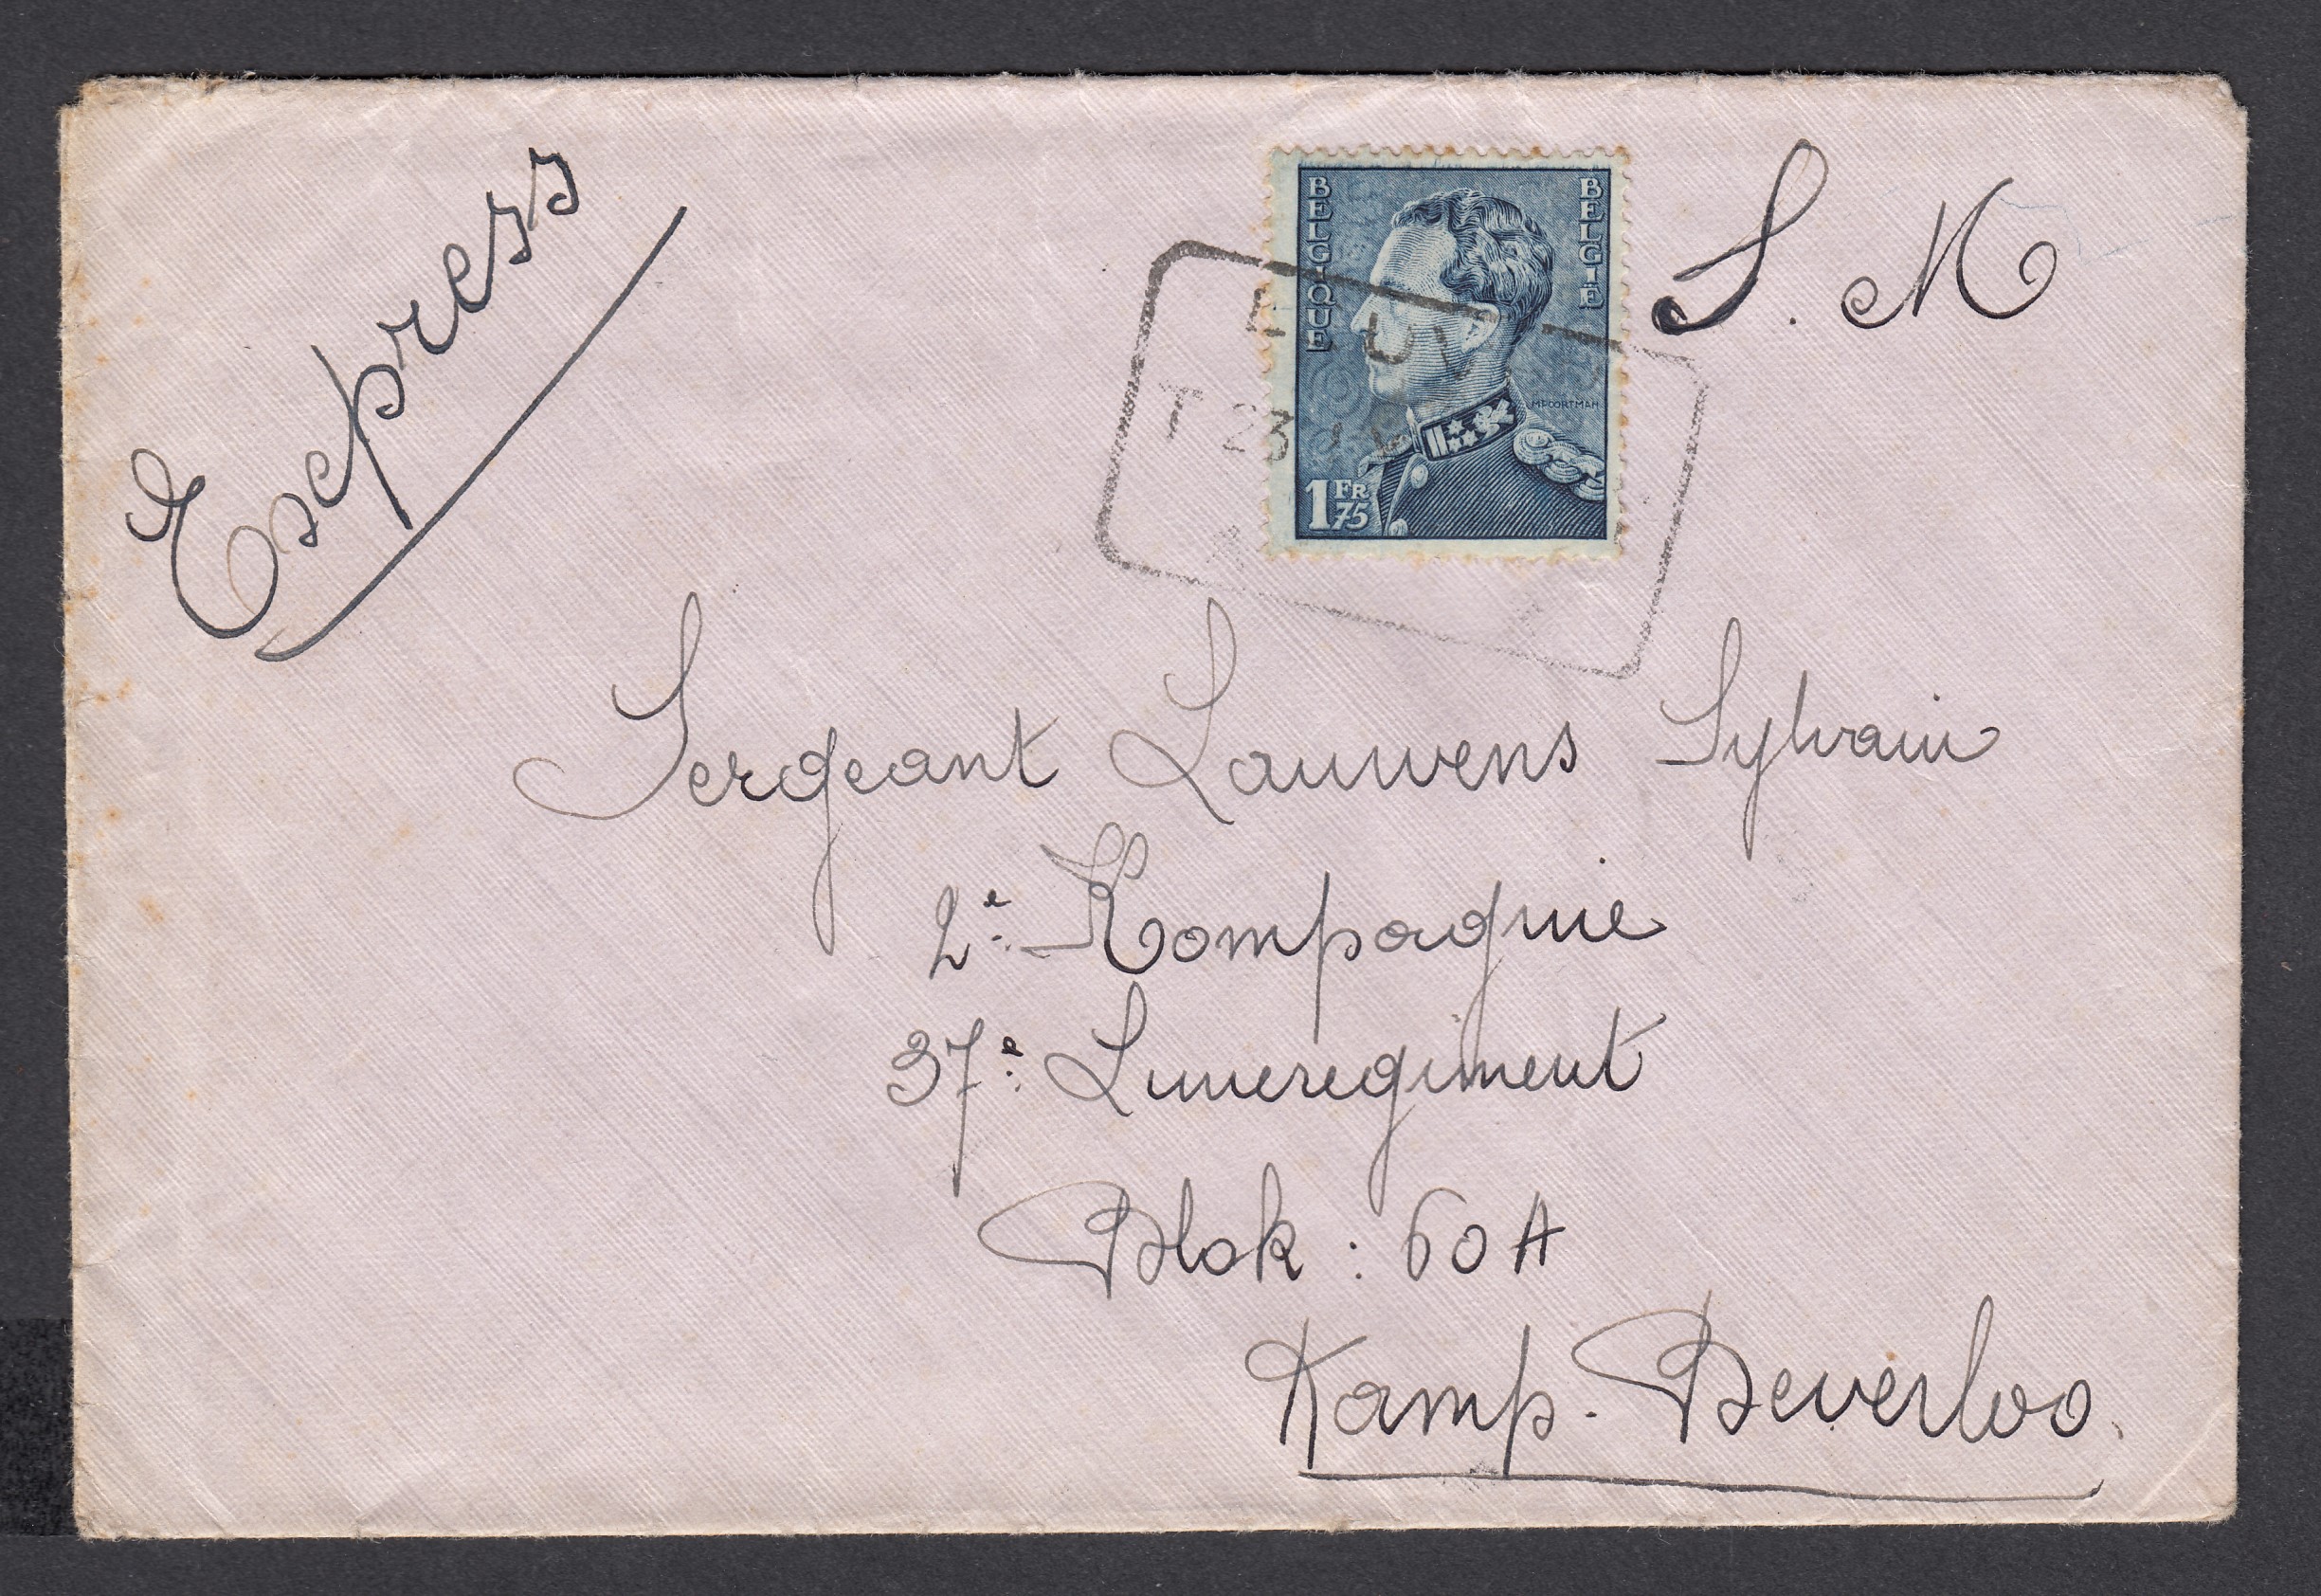 Express
S. M
BELGIQUE
BELGIË
MPOORTMAN
1 FR 75
T 23
Sergeant Lauwens Sylvain
2e Kompagnie
37e Linieregiment
Blok : 60 A
Kamp. Beverloo.